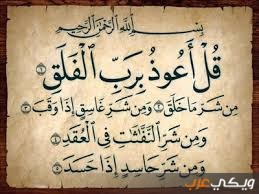 بِسْمِ اللَّهِ الرَّحْمَٰنِ الرَّحِيمِ
قُلْ أَعُوذُ بِرَبِّ الْفَلَقِ ١
مِن شَرِّ مَا خَلَقَ ٢ وَمِن شَرِّ غَاسِقٍ إِذَا وَقَبَ ٣
وَمِن شَرِّ النَّفَّاثَاتِ فِي الْعُقَدِ ٤
وَمِن شَرِّ حَاسِدٍ إِذَا حَسَدَ ٥
ويكي عرب